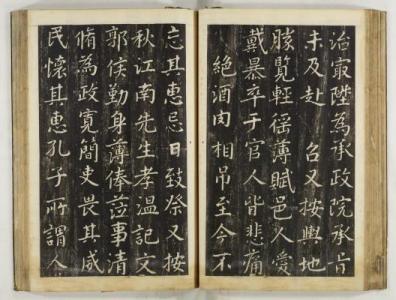 治㝡陞為承政院承旨
未及赴 召又按輿地
勝覽輕徭薄賦邑人愛
戴暴卒于官人皆悲痛
絶酒肉相吊至今不
忘其惠忌日致祭又按
秋江南先生孝温記文
郭侯勤身薄俸莅事清
脩為政寛簡吏畏其威
民懷其惠孔子所謂人